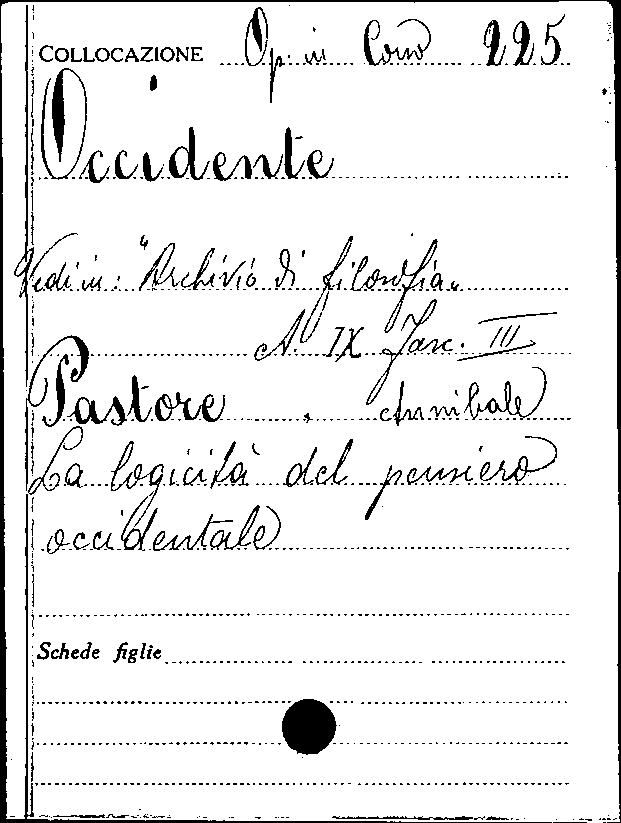 COLLOCAZIONE Op. in Corso 225
Occidente
Vedi in: "Archivio di filosofia„
A. IX Fasc. III
Pastore, Annibale
La logicità del pensiero
occidentale
Schede figlie